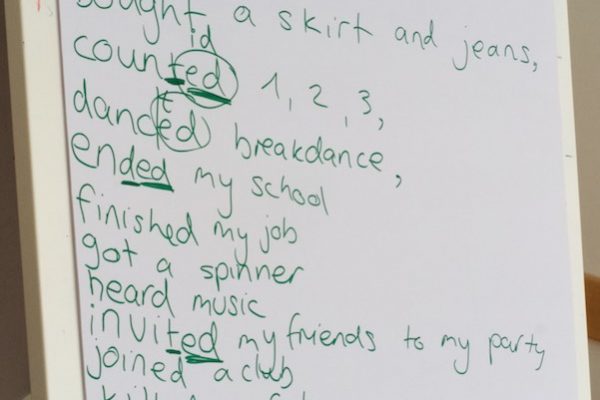 bought a skirt and jeans,
id
counted 1, 2, 3,
t
danced breakdance,
ended my school
finished my job
got a spinner
heard music
invited my friends to my party
joined a club